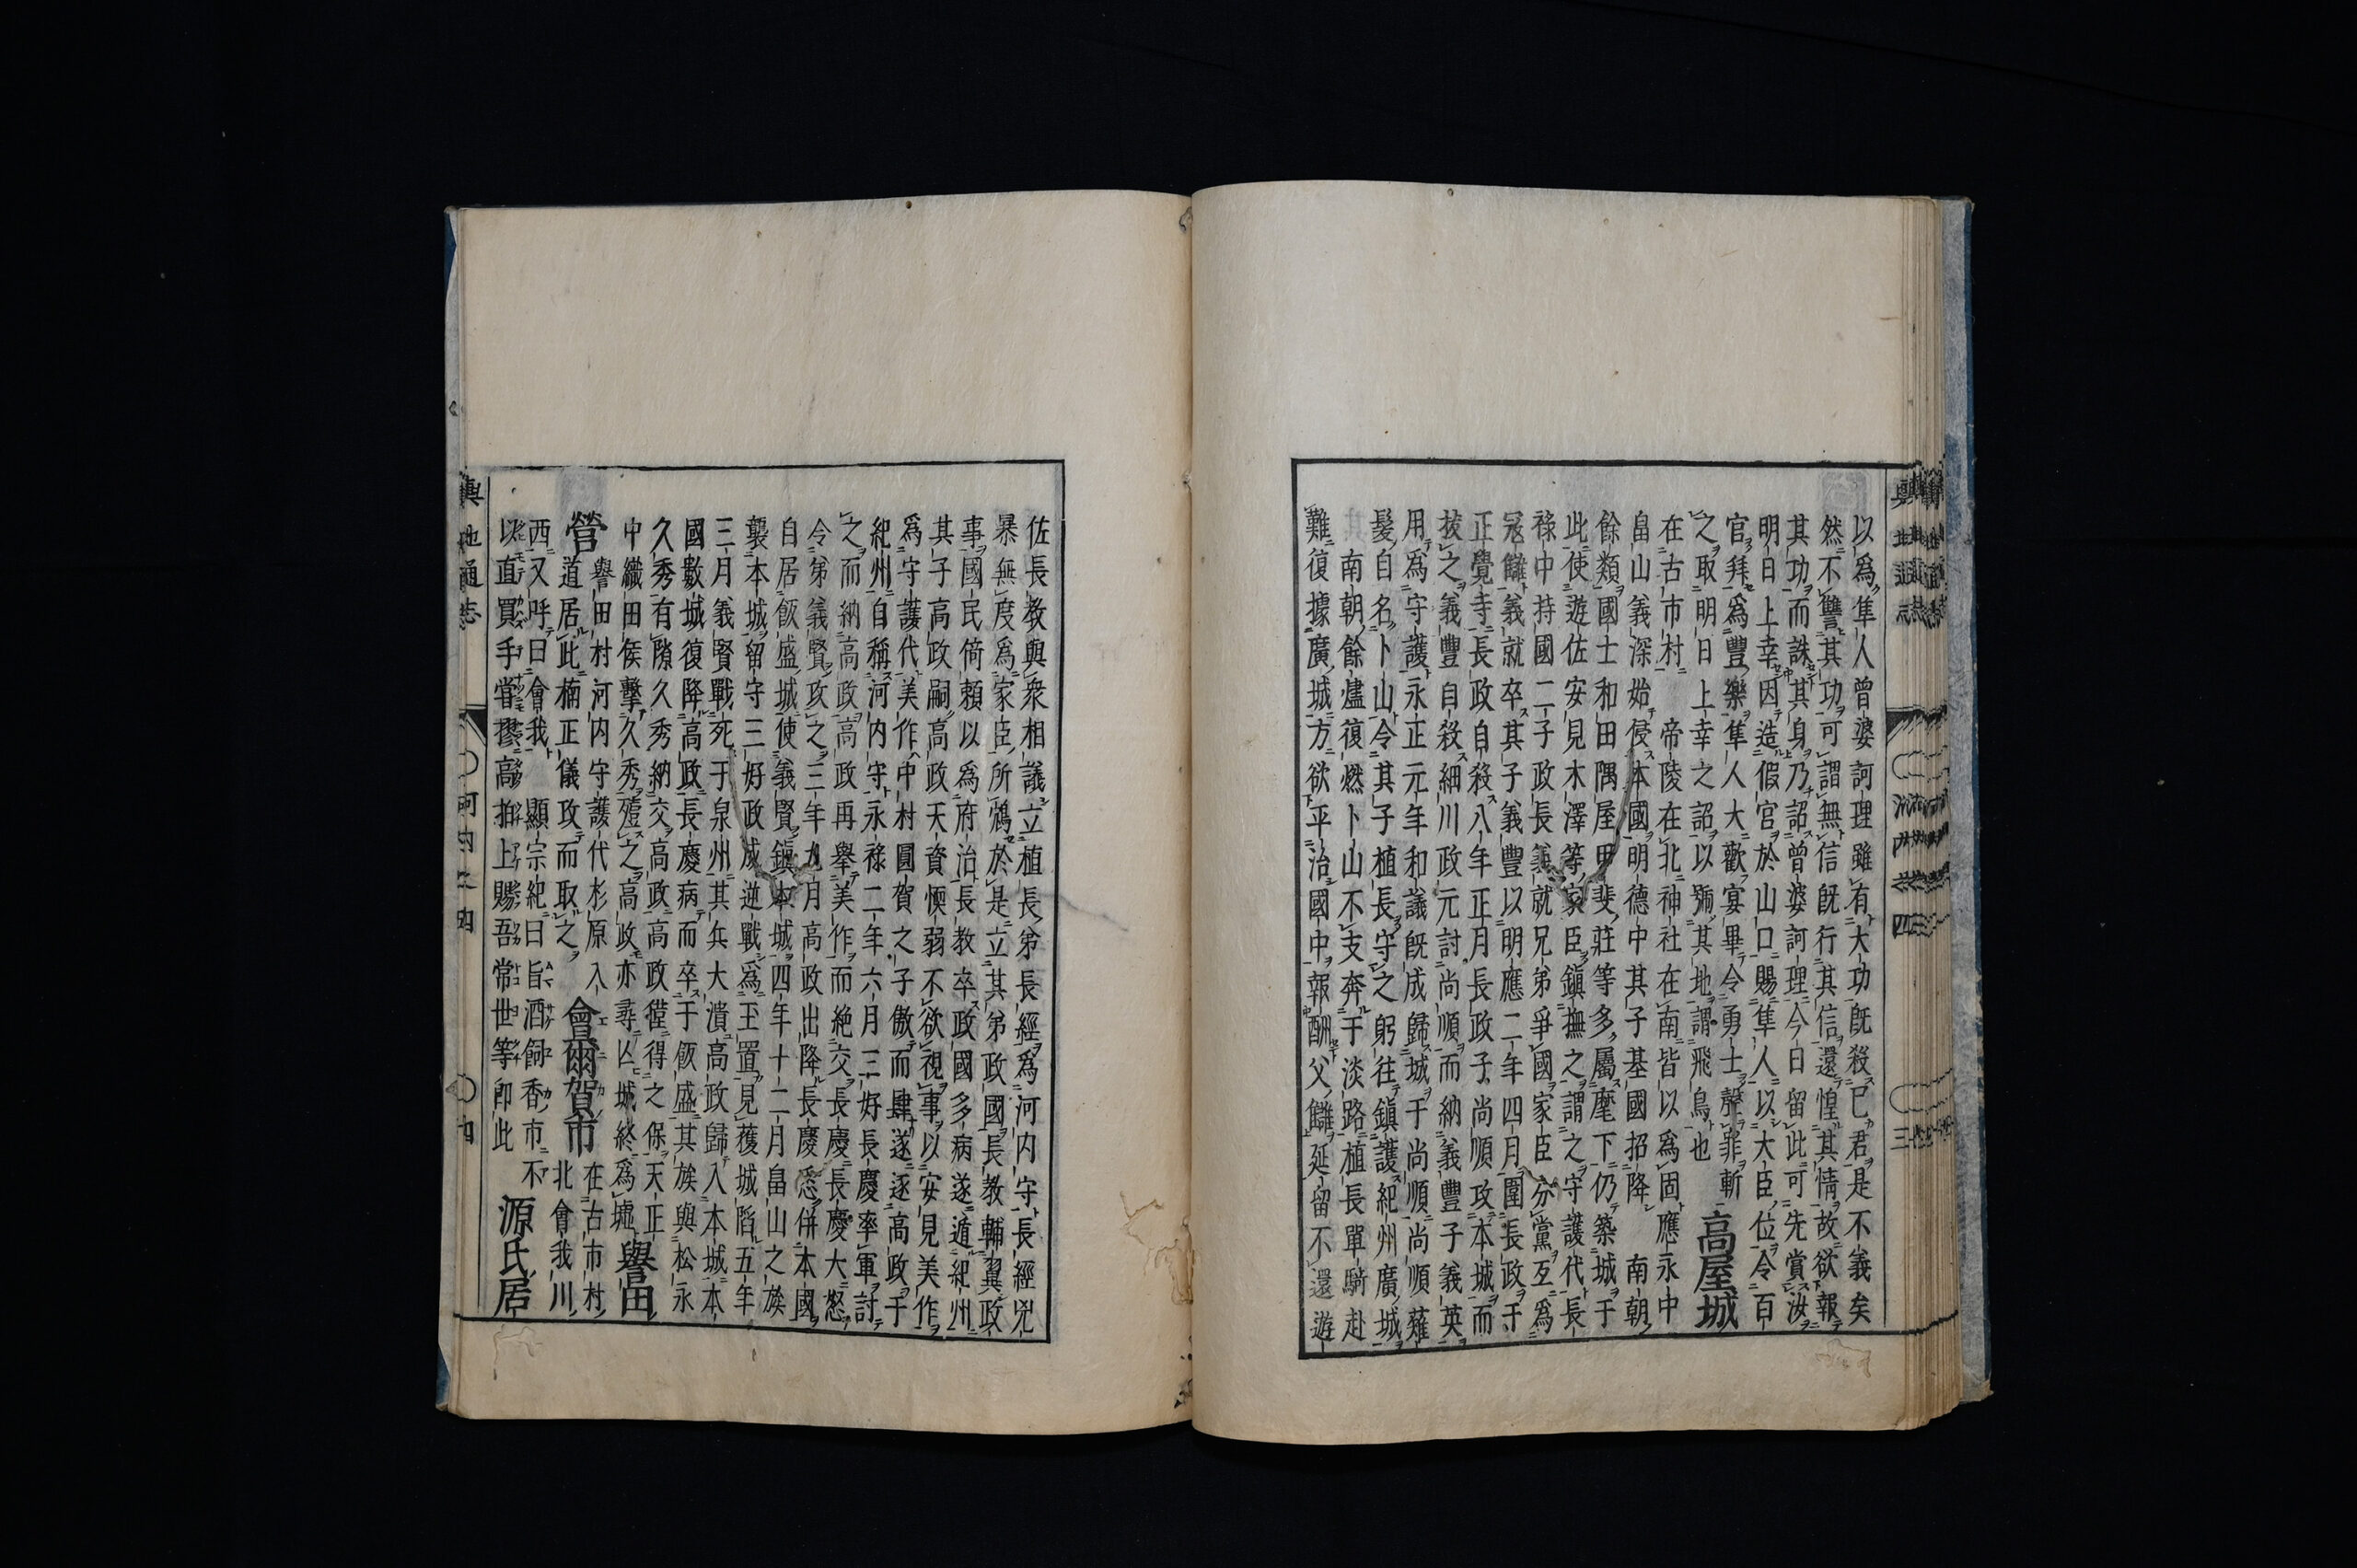 以爲隼人曾婆訶理雖有大功既殺已君是不義矣
然不讐其功可謂無信既行其信還惶其情故欲報
其功而誅其身乃詔曾婆訶理今日留此可先賞汝
明日上幸因造假官於山口賜隼人以大臣位令百
官拜爲豐樂隼人大歡宴畢令勇士聲罪斬
之取明日上幸之詔以號其地謂飛鳥也
高屋城
在古市村 帝陵在北神社在南皆以爲固應永中
畠山義深始侵本國明德中其子基國招降南朝
餘類國士和田隅屋甲斐莊等多屬麾下仍築城于
此使遊佐安見木澤等家臣鎭撫之謂之守護代長
祿中持國二子政長義就兄弟爭國家臣分黨互爲
冦讎義就卒其子義豐以明應二年四月圍長政于
正覺寺長政自殺八年正月長政子尚順攻本城而
拔之義豐自殺細川政元討尚順而納義豐子義英
用爲守護永正元年和議既成歸城于尚順尚順薙
髮自名卜山令其子植長守之躬往鎭護紀州廣城
南朝餘燼復燃卜山不支奔于淡路植長單騎赴
難復據廣城方欲平治國中報酬父讎延留不還遊
輿地通志 河内 四 三
佐長教與衆相議立植長弟長經爲河内守長經兇
暴無度爲家臣所鴆於是立其弟政國長教輔翼政
事國民倚賴以爲府治長教卒政國多病遂遁紀州
其子高政嗣高政天資懊弱不欲視事以安見美作
爲守護代美作中村圓賀之子傲而肆遂逐高政于
紀州自稱河内守永祿二年六月三好長慶率軍討
之而納高政高政再舉美作而絶交長慶長慶大怒
令弟義賢攻之三年九月高政出降長慶悉併本國
自居飯盛城使義賢鎭本城四年十二月畠山之族
襲本城留守三好政成逆戰爲玉置見獲城陷五年
三月義賢戰死于泉州其兵大潰高政歸入本城本
國數城復降高政長慶病而卒于飯盛其族與松永
久秀有隙久秀納交高政高政得之保天正
中織田侯擊久秀殪之高政亦尋亾城終爲墟
譽田
譽田村河内守護代杉原入
營
道居此楠正儀攻而取之
會爾賀市
在古市村
北會我川
西又呼曰會我 顯宗紀曰旨酒餌香市不
以直買手掌摎亮拍上賜吾常世等即此
源氏居
輿地通志 河内之四 四